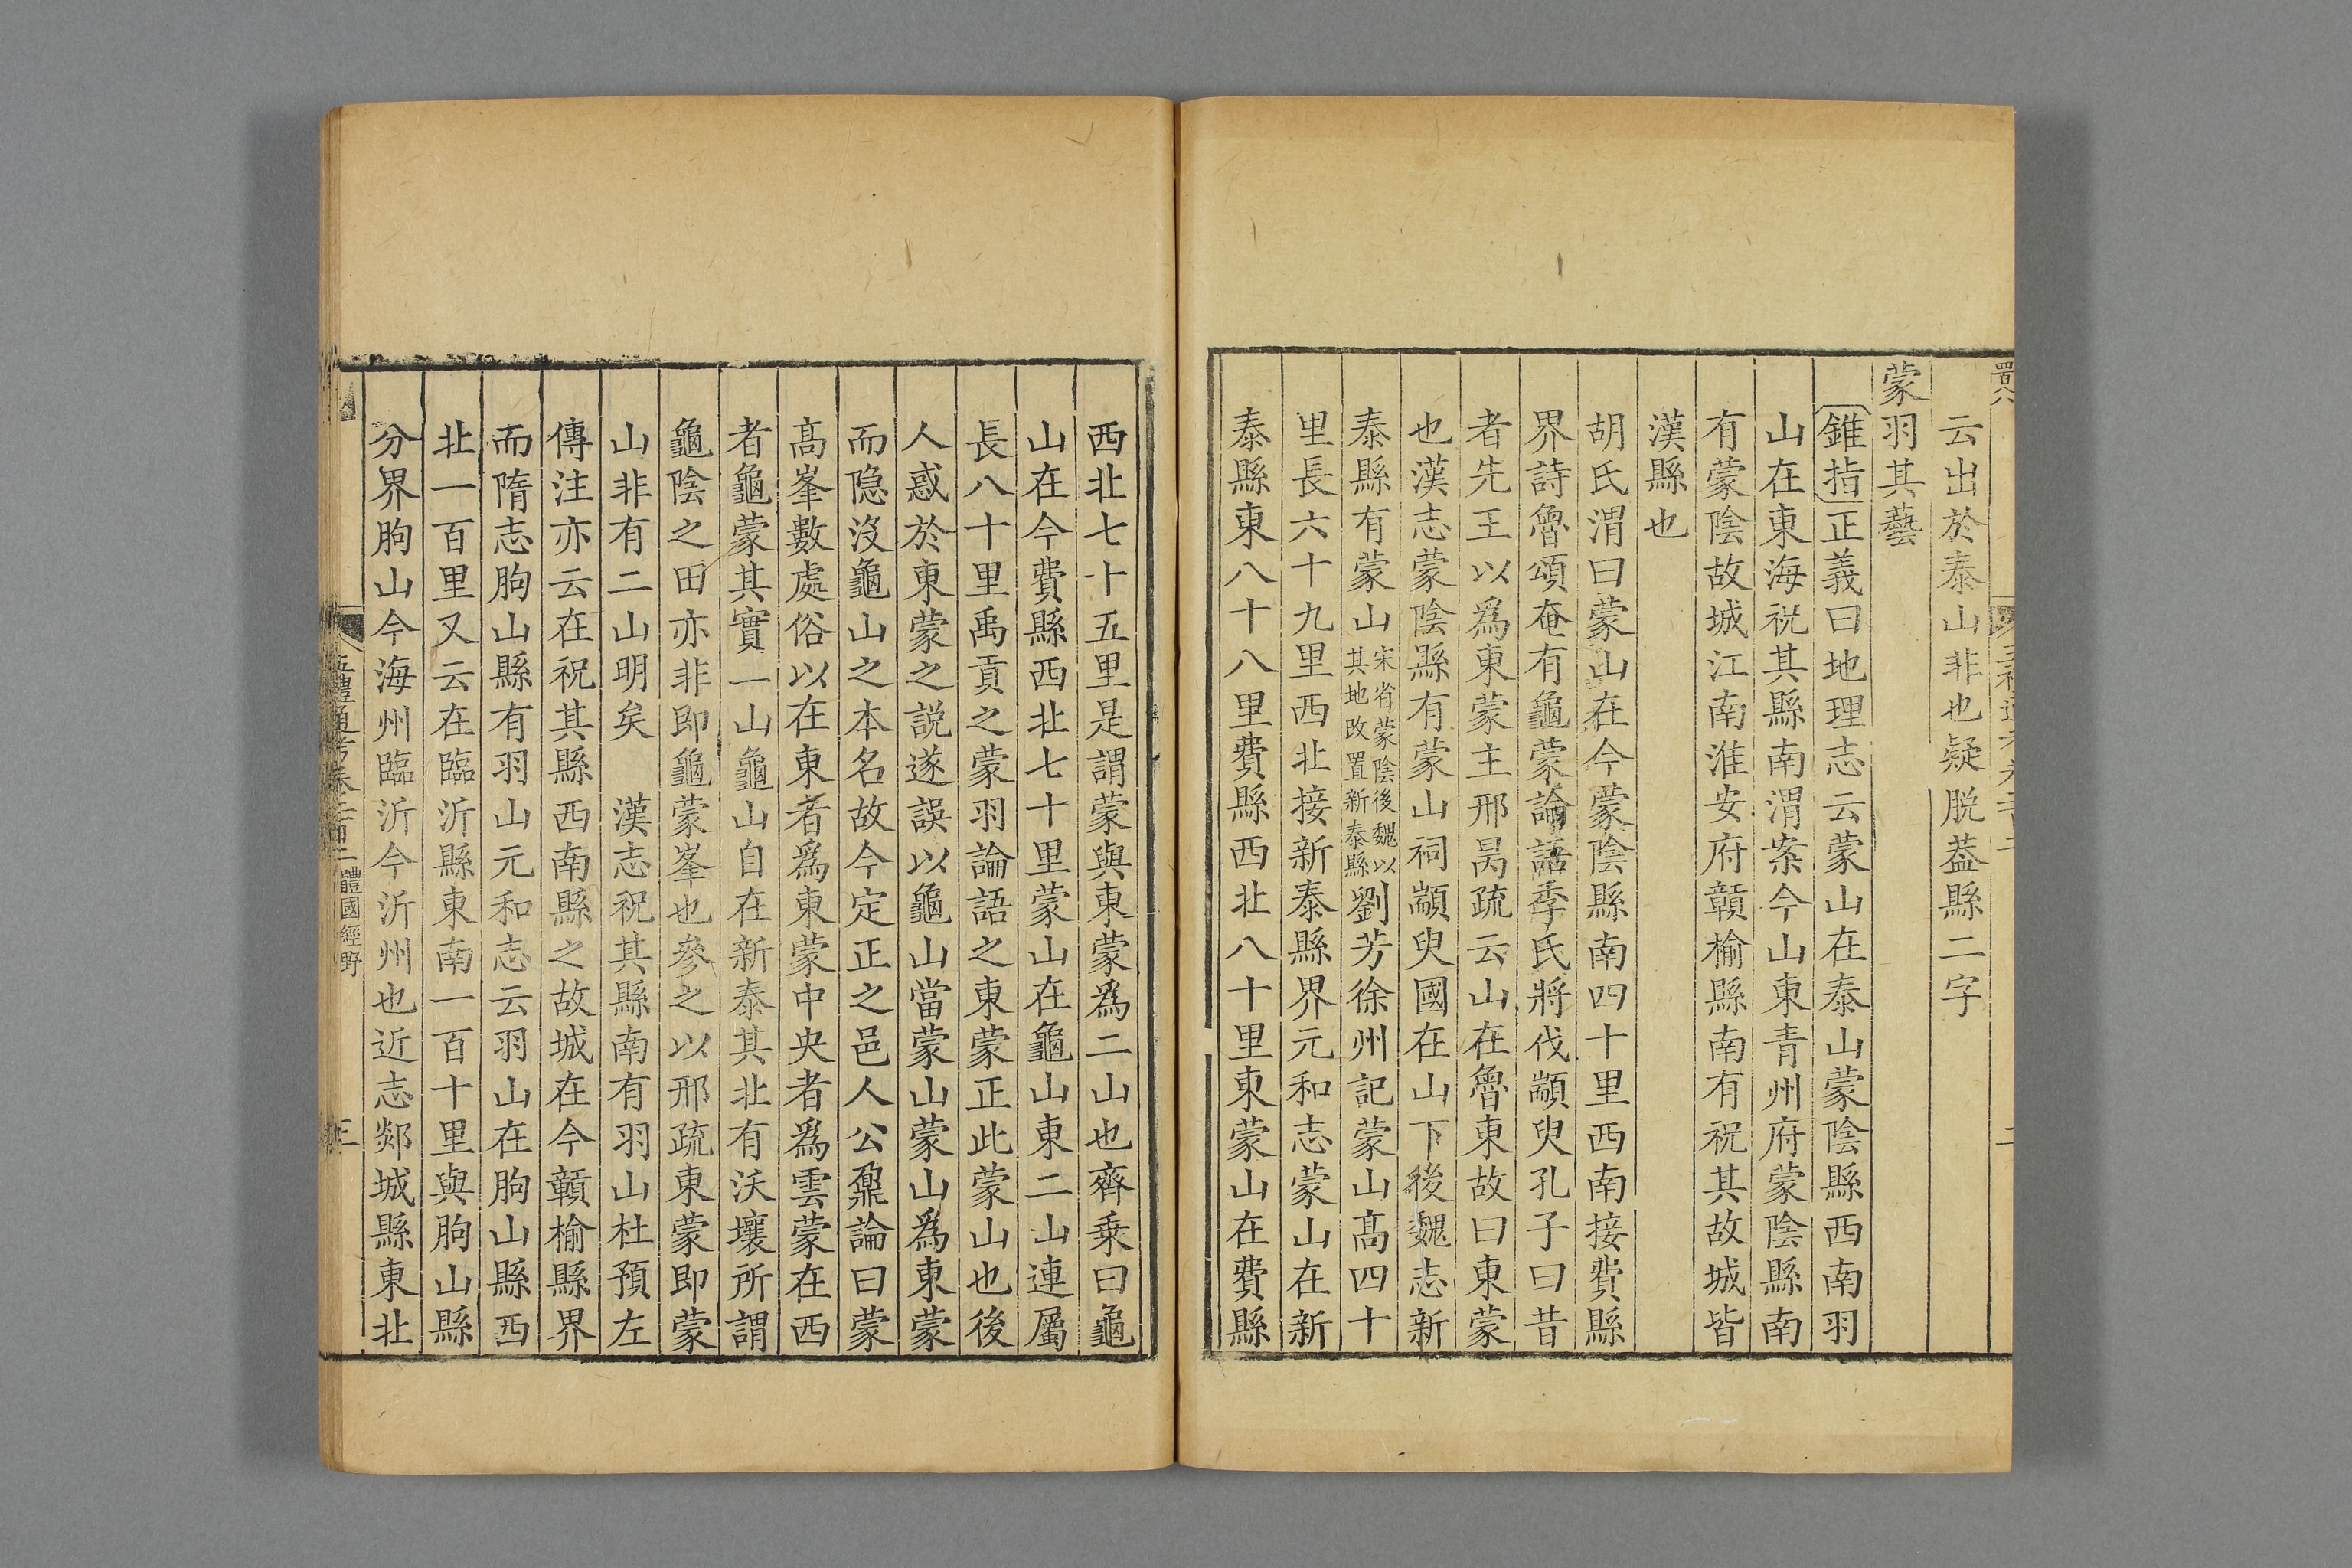 云出於泰山非也疑脱葢縣二字
蒙羽其藝
錐指正義曰地理志云蒙山在泰山蒙陰縣西南羽
山在東海祝其縣南渭案今山東青州府蒙陰縣南
有蒙陰故城江南淮安府贑榆縣南有祝其故城皆
漢縣也
胡氏渭曰蒙山在今蒙陰縣南四十里西南接費縣
界詩魯頌奄有龜蒙論語季氏將伐顓臾孔子曰昔
者先王以爲東蒙主邢昺疏云山在魯東故曰東蒙
也漢志蒙陰縣有蒙山祠顓臾國在山下後魏志新
泰縣有蒙山宋省蒙陰後魏以其地改置新泰縣劉芳徐州記蒙山高四十
里長六十九里西北接新泰縣界元和志蒙山在新
泰縣東八十八里費縣西北八十里東蒙山在費縣
西北七十五里是謂蒙與東蒙爲二山也齊乗曰龜
山在今費縣西北七十里蒙山在龜山東二山連屬
長八十里禹貢之蒙羽論語之東蒙正此蒙山也後
人惑於東蒙之説遂誤以龜山當蒙山蒙山爲東蒙
而隐沒龜山之本名故今定正之邑人公鼐論曰蒙
髙峯數處俗以在東者爲東蒙中央者爲雲蒙在西
者龜蒙其實一山龜山自在新泰其北有沃壤所謂
龜陰之田亦非即龜蒙峯也參之以邢疏東蒙即蒙
山非有二山明矣　漢志祝其縣南有羽山杜預左
傳注亦云在祝其縣西南縣之故城在今贑榆縣界
而隋志朐山縣有羽山元和志云羽山在朐山縣西
北一百里又云在臨沂縣東南一百十里與朐山縣
分界朐山今海州臨沂今沂州也近志郯城縣東北
五禮通考卷二百二 體國經野
三